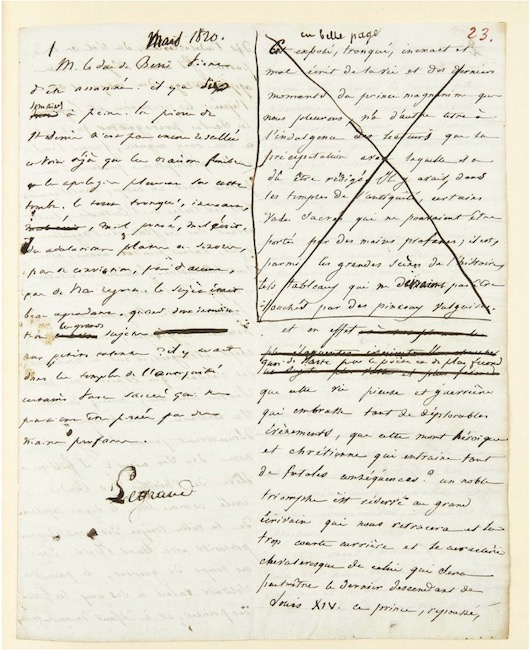 1 Mars 1820.
M. le duc de Berri vient
d'être assassiné. il y a dix
semaines
à peine. la pierre de
St Denis n'est pas encore scellée
et voici déjà que les oraisons funèbres
et les apologies pleuvent sur cette
tombe. le tout tronqué, inexact,
mal pensé, mal écrit,
des adulations plates ou
pas de conviction, pas d'accent,
pas de vrai regret. le sujet était
beau cependant. quand donc
les grands sujets
aux petits talents ? il y avait
dans les temples de l'antiquité
certains vases sacrés qui ne
pouvaient être portés par des
mains profanes.
en belle page
23.
Cet exposé, tronqué, inexact et
mal écrit de la vie et des derniers
moments du prince magnanime que
nous pleurons, n'a d'autre titre à
l'indulgence des lecteurs que la
précipitation avec laquelle il a
dû être rédigé. Il y avait, dans
les temples de l'antiquité, certains
vases sacrés qui ne pouvaient être
portés par des mains profanes ; il est,
parmi les grandes scènes de l'histoire,
des tableaux qui ne devraient pas être
touchés par des pinceaux vulgaires.
et en effet
que cette vie pieuse et guerrière
qui embrasse tant de déplorables
évènements, que cette mort héroïque
et chrétienne qui entraîne tant
de fatales conséquences ? un noble
triomphe est réservé au grand
écrivain qui nous retracera et la
trop courte carrière et le caractère
chevaleresque de celui qui sera
peut-être le dernier descendant de
Louis XIV. ce prince, repoussé,